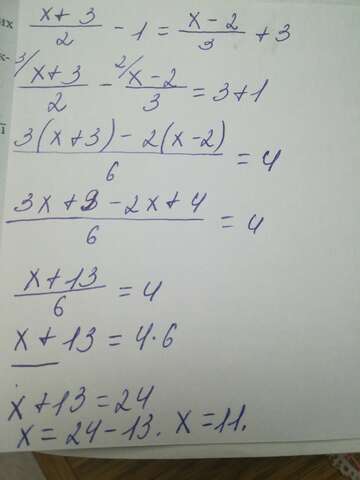 их
(x+3)/2 - 1 = (x-2)/3 + 3
к-
3/ (x+3)/2 - 2/ (x-2)/3 = 3+1
(3(x+3) - 2(x-2))/6 = 4
(3x+9-2x+4)/6 = 4
(x+13)/6 = 4
x+13 = 4·6
x+13 = 24
x = 24-13. x = 11.